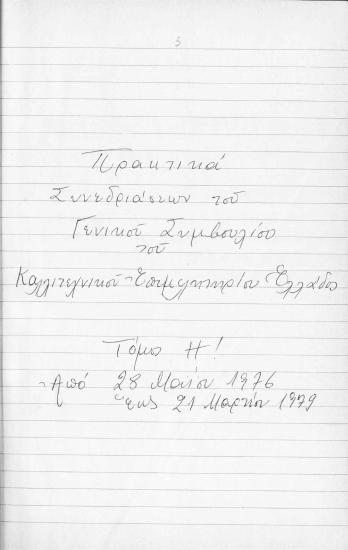 3
Πρακτικά
Συνεδριάσεων τοῦ
Γενικοῦ Συμβουλίου
τοῦ
Καλλιτεχνικοῦ Ἐπιμελητηρίου Ἑλλάδος
Τόμος Η!
Ἀπό 28 Μαΐου 1976
ἕως 21 Μαρτίου 1979